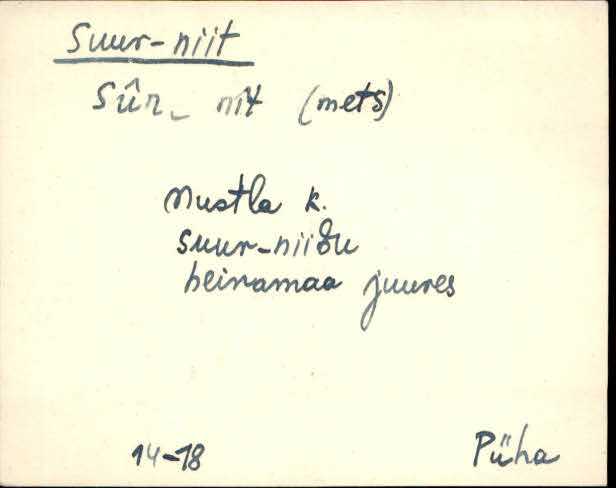 Suur-niit
Sûr_ nît (mets)
Mustla k.
suur-niiđu
heinamaa juures
14-18 Püha